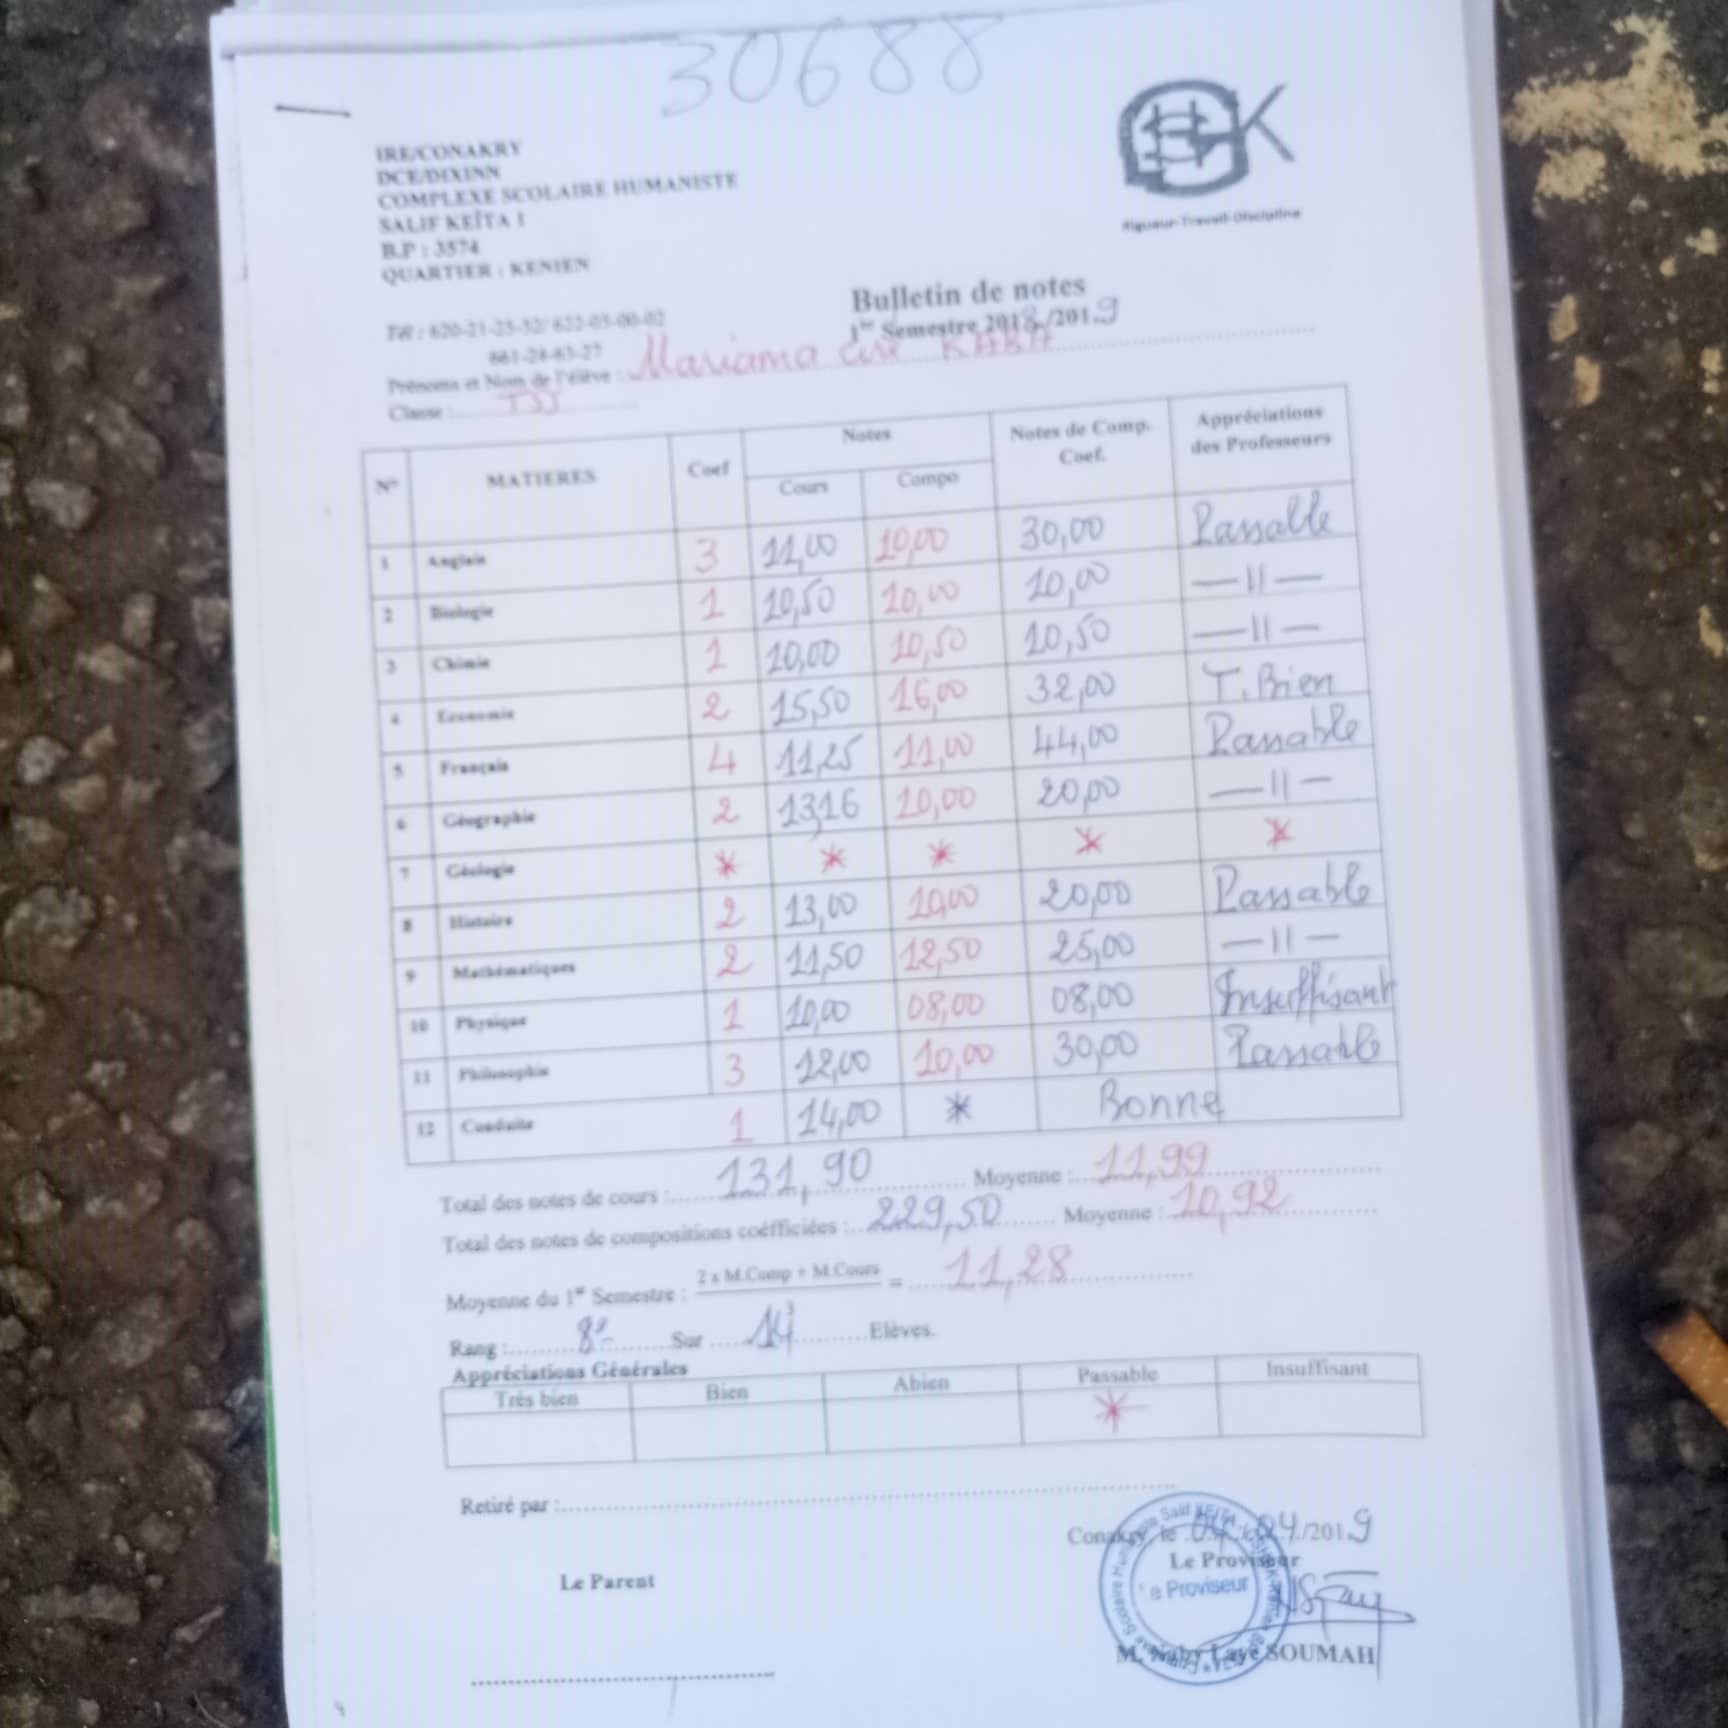 30688
IRE/CONAKRY
DCE/DIXINN
COMPLEXE SCOLAIRE HUMANISTE
SALIF KEÏTA I
B.P : 3574
QUARTIER : KENIEN
Rigueur-Travail-Discipline
Bulletin de notes
1er Semestre 2018/2019
Tél : 620-21-25-52/ 622-05-00-02
661-28-63-27
Prénoms et Nom de l'élève : Mariama Ciré KABA
Classe : TSS
N° MATIERES Coef Notes Notes de Comp. Coef. Appréciations des Professeurs
Cours Compo
1 Anglais 3 11,00 10,00 30,00 Passable
2 Biologie 1 10,50 10,00 10,00 —11—
3 Chimie 1 10,00 10,50 10,50 —11—
4 Economie 2 15,50 16,00 32,00 T.Bien
5 Français 4 11,25 11,00 44,00 Passable
6 Géographie 2 13,16 10,00 20,00 —11—
7 Géologie * * * * *
8 Histoire 2 13,00 10,00 20,00 Passable
9 Mathématiques 2 11,50 12,50 25,00 —11—
10 Physique 1 10,00 08,00 08,00 Insuffisant
11 Philosophie 3 12,00 10,00 30,00 Passable
12 Conduite 1 14,00 * Bonne
Total des notes de cours : 131,90 Moyenne : 11,99
Total des notes de compositions coéfficiées : 229,50 Moyenne : 10,92
Moyenne du 1er Semestre : 2 x M.Comp + M.Cours = 11,28
3
Rang : 8e Sur 14 Elèves.
Appréciations Générales
Très bien Bien Abien Passable Insuffisant
*
Retiré par :
Conakry, le 04/04/2019
Le Parent Le Proviseur
Le Proviseur
M. Naby Laye SOUMAH